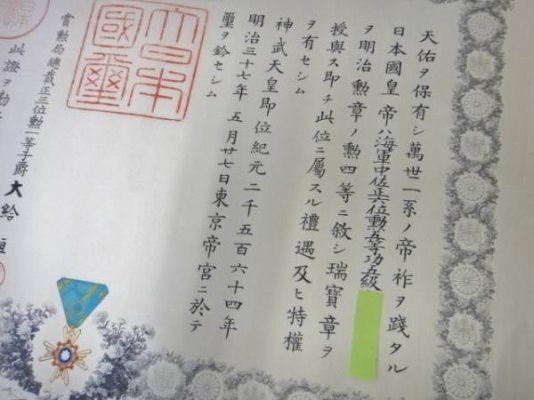 天佑ヲ保有シ萬世一系ノ帝祚ヲ踐タル
日本國皇帝ハ海軍中佐正六位勳五等功五級
ヲ明治勳章ノ勳四等ニ敘シ瑞寶章ヲ
授與ス即チ此位ニ屬スル禮遇及ヒ特權
ヲ有セシム
神武天皇即位紀元二千五百六十四年
明治三十七年五月廿七日東京帝宮ニ於テ
璽ヲ鈐セシム
大日本
國璽
賞勳局總裁正三位勳一等子爵大給恒
此證ヲ勘